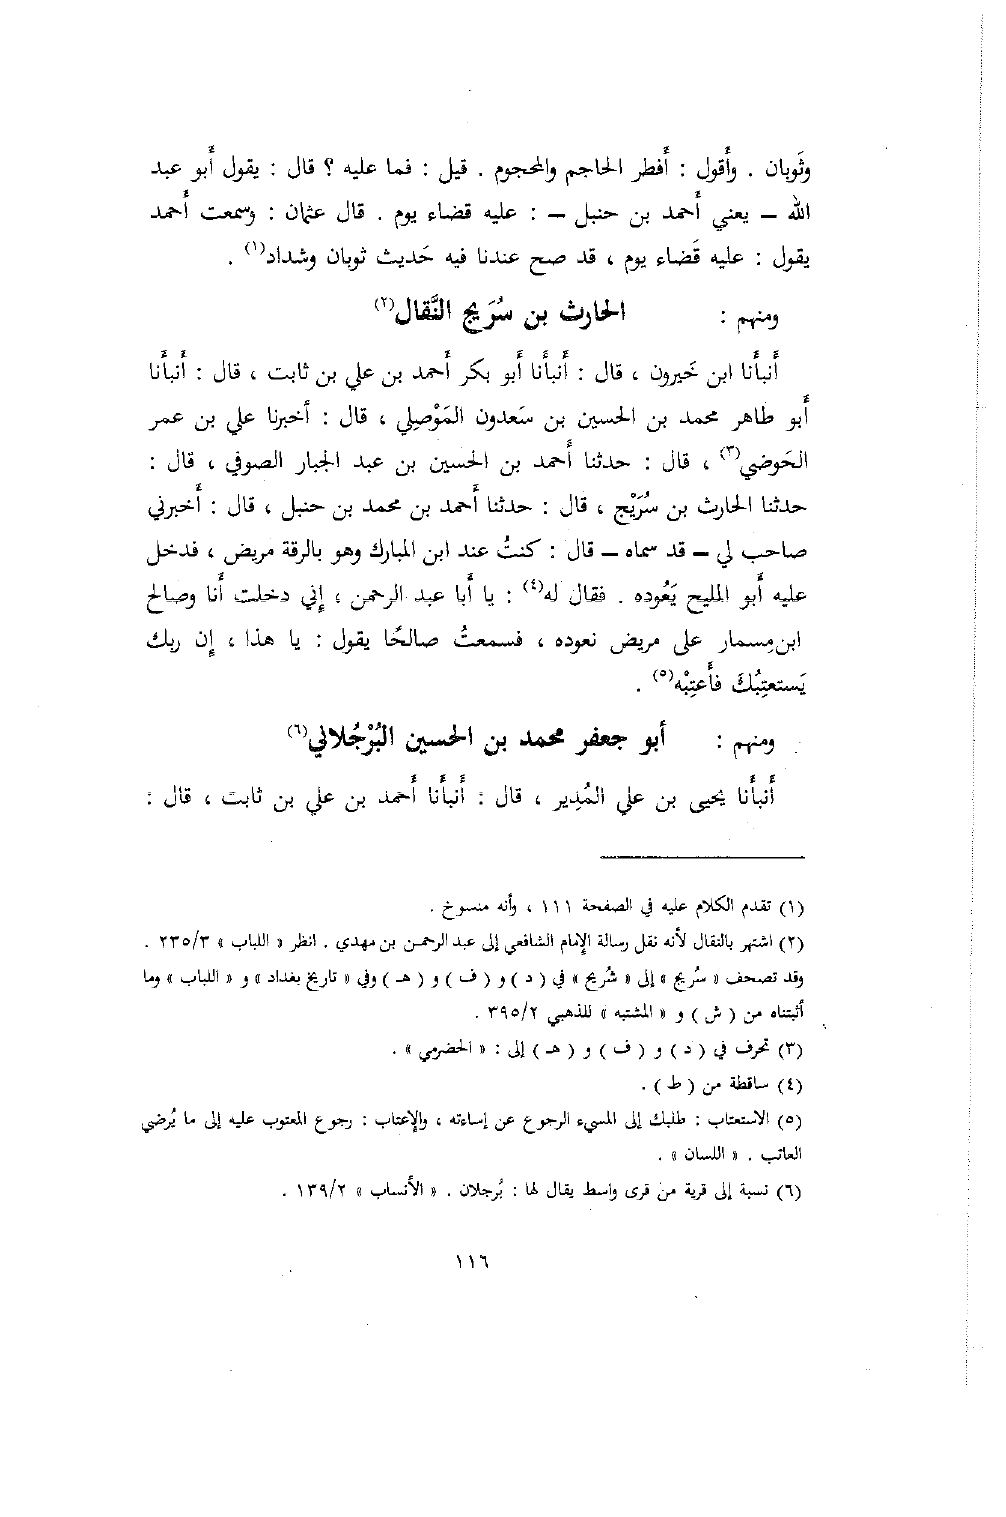 وثَوبان . وأَقول : أَفطر الحاجم والمحجوم . قيل : فما عليه ؟ قال : يقول أَبو عبد
الله – يعني أَحمد بن حنبل – : عليه قضاء يوم . قال عثمان : وسمعت أَحمد
يقول : عليه قَضاء يوم ، قد صح عندنا فيه حَديث ثوبان وشداد(١) .
ومنهم : الحارث بن سُرَيج النَّقال(٢)
أَنبأَنا ابن خَيرون ، قال : أَنبأَنا أَبو بكر أَحمد بن علي بن ثابت ، قال : أَنبأَنا
أَبو طاهر محمد بن الحسين بن سَعدون المَوْصِلي ، قال : أخبرنا علي بن عمر
الحَوضي(٣) ، قال : حدثنا أَحمد بن الحسين بن عبد الجبار الصوفي ، قال :
حدثنا الحارث بن سُرَيْج ، قال : حدثنا أَحمد بن محمد بن حنبل ، قال : أَخبرني
صاحب لي – قد سماه – قال : كنتُ عند ابن المبارك وهو بالرقة مريض ، فدخل
عليه أَبو المليح يَعُوده . فقال له(٤) : يا أَبا عبد الرحمن ، إِني دخلت أَنا وصالح
ابن مِسمار على مريض نعوده ، فسمعتُ صالحًا يقول : يا هذا ، إِن ربك
يَستعتِبُكَ فأَعتِبْه(٥) .
ومنهم : أبو جعفر محمد بن الحسين البُرْجُلاني(٦)
أَنبأَنا يحيى بن علي المُدِير ، قال : أَنبأَنا أَحمد بن علي بن ثابت ، قال :
(١) تقدم الكلام عليه في الصفحة ١١١ ، وأنه منسوخ .
(٢) اشتهر بالنقال لأنه نقل رسالة الإمام الشافعي إلى عبد الرحمن بن مهدي . انظر « اللباب » ٢٣٥/٣ .
وقد تصحف « سُريج » إلى « شُريح » في ( د ) و ( ف ) و ( هـ ) وفي « تاريخ بغداد » و « اللباب » وما
أثبتناه من ( ش ) و « المشتبه » للذهبي ٣٩٥/٢ .
(٣) تحرف في ( د ) و ( ف ) و ( هـ ) إلى : « الحضرمي » .
(٤) ساقطة من ( ط ) .
(٥) الاستعتاب : طلبك إلى المسيء الرجوع عن إساءته ، والإعتاب : رجوع المعتوب عليه إلى ما يُرضي
العاتب . « اللسان » .
(٦) نسبة إلى قرية من قرى واسط يقال لها : بُرجلان . « الأنساب » ١٣٩/٢ .
١١٦